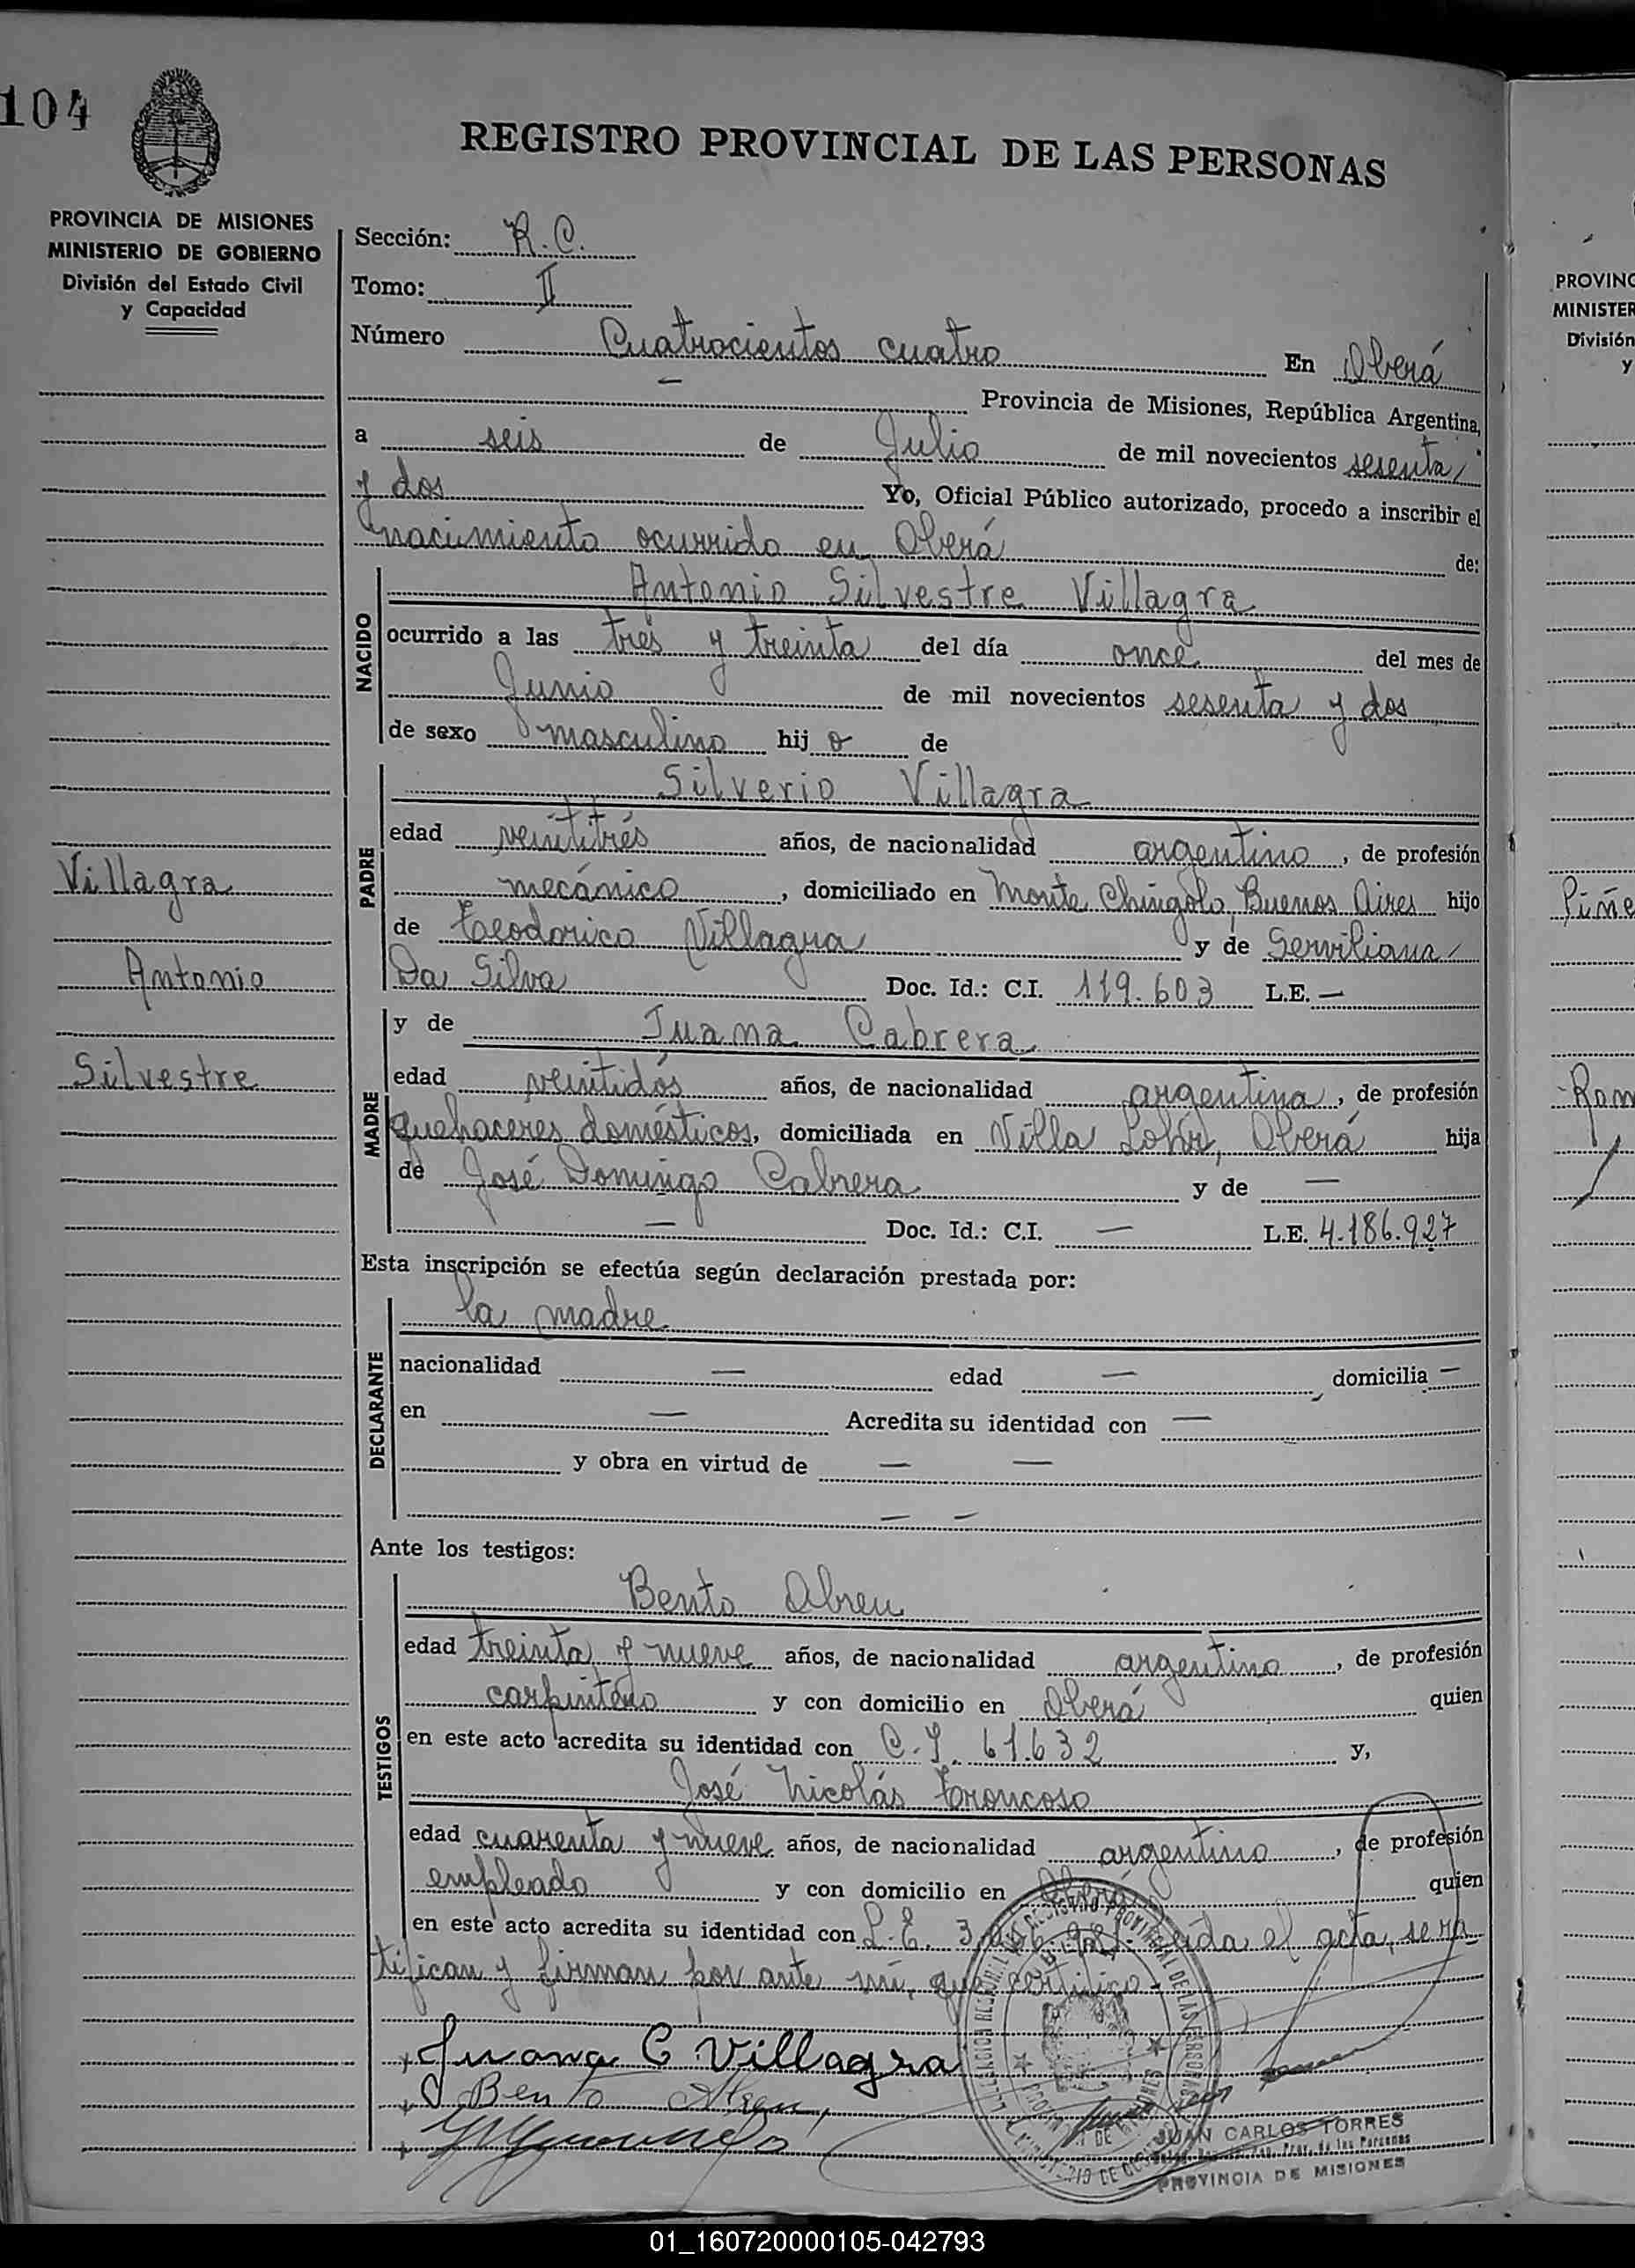 104
REGISTRO PROVINCIAL DE LAS PERSONAS
PROVINCIA DE MISIONES
MINISTERIO DE GOBIERNO
División del Estado Civil
y Capacidad
Sección: R.C.
Tomo: II
Número Cuatrocientos cuatro En Oberá
— Provincia de Misiones, República Argentina,
a seis de Julio de mil novecientos sesenta
y dos Yo, Oficial Público autorizado, procedo a inscribir el
nacimiento ocurrido en Oberá de:
NACIDO
Antonio Silvestre Villagra
ocurrido a las tres y treinta del día once del mes de
Junio de mil novecientos sesenta y dos
de sexo masculino hijo de
PADRE
Silverio Villagra
edad veintitrés años, de nacionalidad argentino, de profesión
mecánico, domiciliado en Monte Chingolo, Buenos Aires hijo
de Teodorico Villagra y de Serviliana
Da Silva Doc. Id.: C.I. 119.603 L.E. —
MADRE
y de Juana Cabrera
edad veintidós años, de nacionalidad argentina, de profesión
quehaceres domésticos, domiciliada en Villa Lohr, Oberá hija
de José Domingo Cabrera y de —
— Doc. Id.: C.I. — L.E. 4.186.927
Villagra
Antonio
Silvestre
Esta inscripción se efectúa según declaración prestada por:
DECLARANTE
la madre
nacionalidad — edad — domicilia —
en — Acredita su identidad con —
y obra en virtud de — —
— —
Ante los testigos:
TESTIGOS
Bento Abreu
edad treinta y nueve años, de nacionalidad argentino, de profesión
carpintero y con domicilio en Oberá quien
en este acto acredita su identidad con C.I. 61.632 y,
José Nicolás Troncoso
edad cuarenta y nueve años, de nacionalidad argentino, de profesión
empleado y con domicilio en Oberá quien
en este acto acredita su identidad con L.E. Leída el acta, se ra
tifican y firman por ante mí, que certifico.
Juana C Villagra
Bento Abreu
JUAN CARLOS TORRES
PROVINCIA DE MISIONES
PROVINC
MINISTER
División
y
Piñe
Rom
01_160720000105-042793